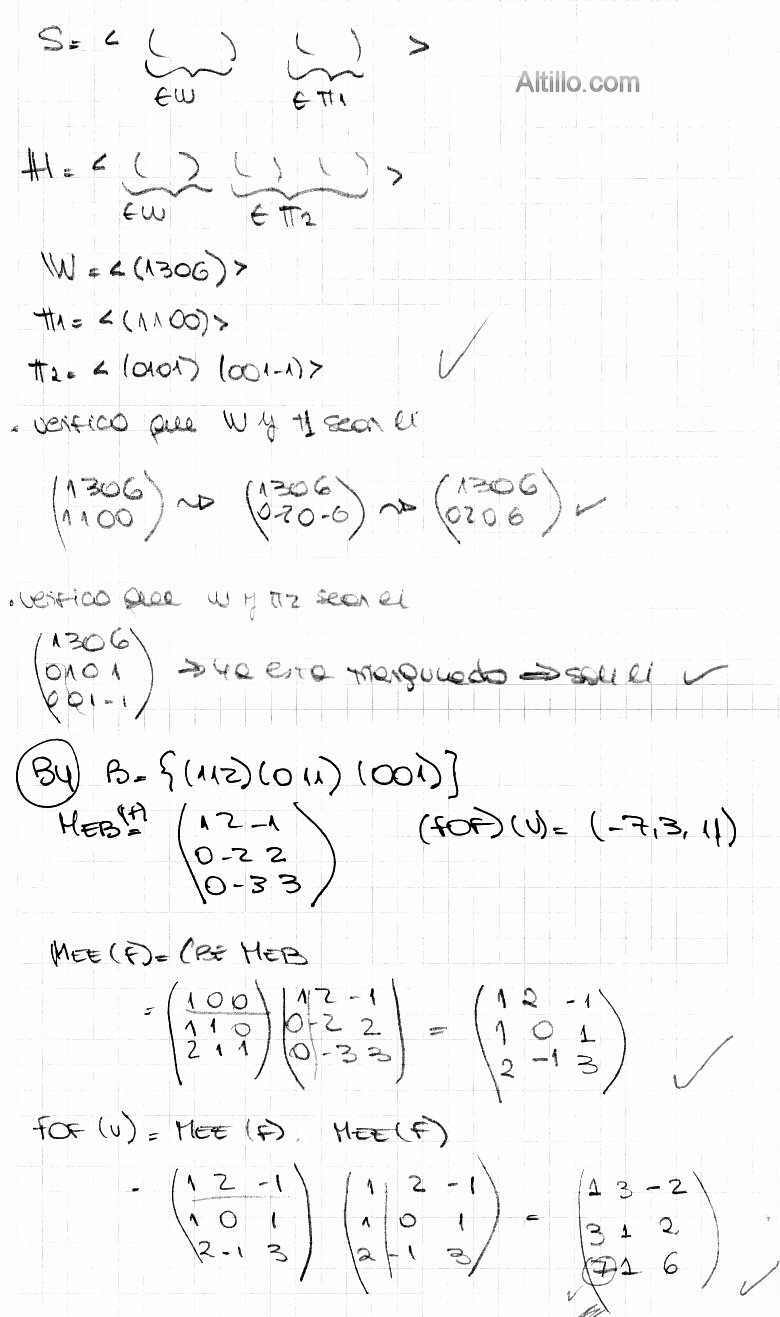 S = < ( ) ( ) >
∈W ∈π1
Altillo.com
H = < ( ) ( ) ( ) >
∈W ∈π2
W = <(1306)>
π1 = <(1100)>
π2 = <(0101) (001-1)>
. verifico que W y π1 sean li
(1306
1100) ⇝ (1306
0-20-6) ⇝ (1306
0206) ✓
. verifico que W y π2 sean li
(1306
0101
001-1) ⇒ ya esta triangulado ⇒ son li ✓
B4 B = {(112)(011)(001)}
MEB(f) = (1 2 -1
0 -2 2
0 -3 3) (fof)(v) = (-7,3,11)
MEE(f) = CBE MEB
= (1 0 0
1 1 0
2 1 1) (1 2 -1
0 -2 2
0 -3 3) = (1 2 -1
1 0 1
2 -1 3)
fof (v) = MEE (f). MEE(f)
= (1 2 -1
1 0 1
2 -1 3) (1 2 -1
1 0 1
2 -1 3) = (1 3 -2
3 1 2
7 1 6)